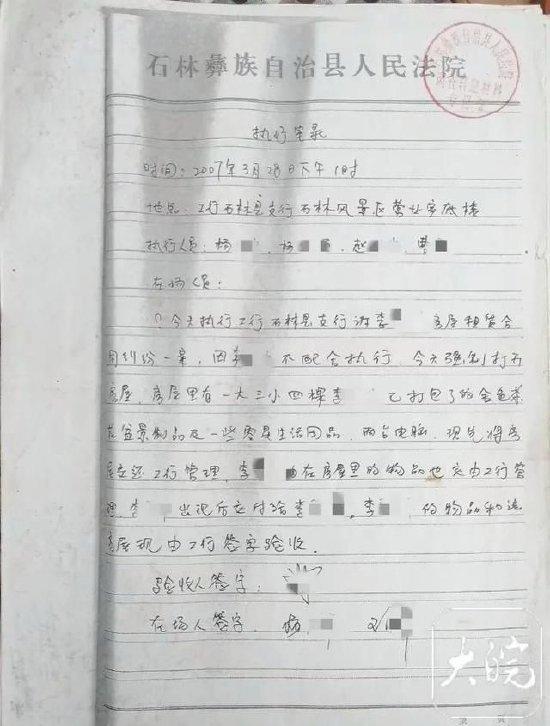 石林彝族自治县人民法院
执行笔录
时间：2007年3月28日下午1时
地点：工行石林县支行石林风景区营业室底楼
执行人员：杨 、杨 、赵 、曹
在场人员：
今天执行工行石林县支行诉李 房屋租赁合
同纠纷一案，因李 不配合执行，今天强制打开
房屋，房屋里有一大三小四棵李 已打包了的金色茶
花盆景制品及一些零星生活用品，两台电脑，现先将房
屋交还工行管理，李 在房屋里的物品也交由工行管
理，李 出现后交付给李 ，李 的物品和该
房屋现由工行签字验收。
验收人签字：
在场人签字： 杨
大皖